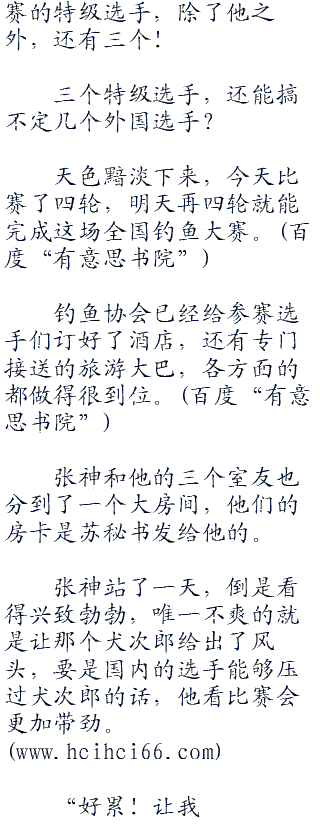 赛的特级选手，除了他之
外，还有三个！
三个特级选手，还能搞
不定几个外国选手？
天色黯淡下来，今天比
赛了四轮，明天再四轮就能
完成这场全国钓鱼大赛。(百
度“有意思书院”)
钓鱼协会已经给参赛选
手们订好了酒店，还有专门
接送的旅游大巴，各方面的
都做得很到位。(百度“有意
思书院”)
张神和他的三个室友也
分到了一个大房间，他们的
房卡是苏秘书发给他的。
张神站了一天，倒是看
得兴致勃勃，唯一不爽的就
是让那个犬次郎给出了风
头，要是国内的选手能够压
过犬次郎的话，他看比赛会
更加带劲。
(www.hcihci66.com)
“好累！让我